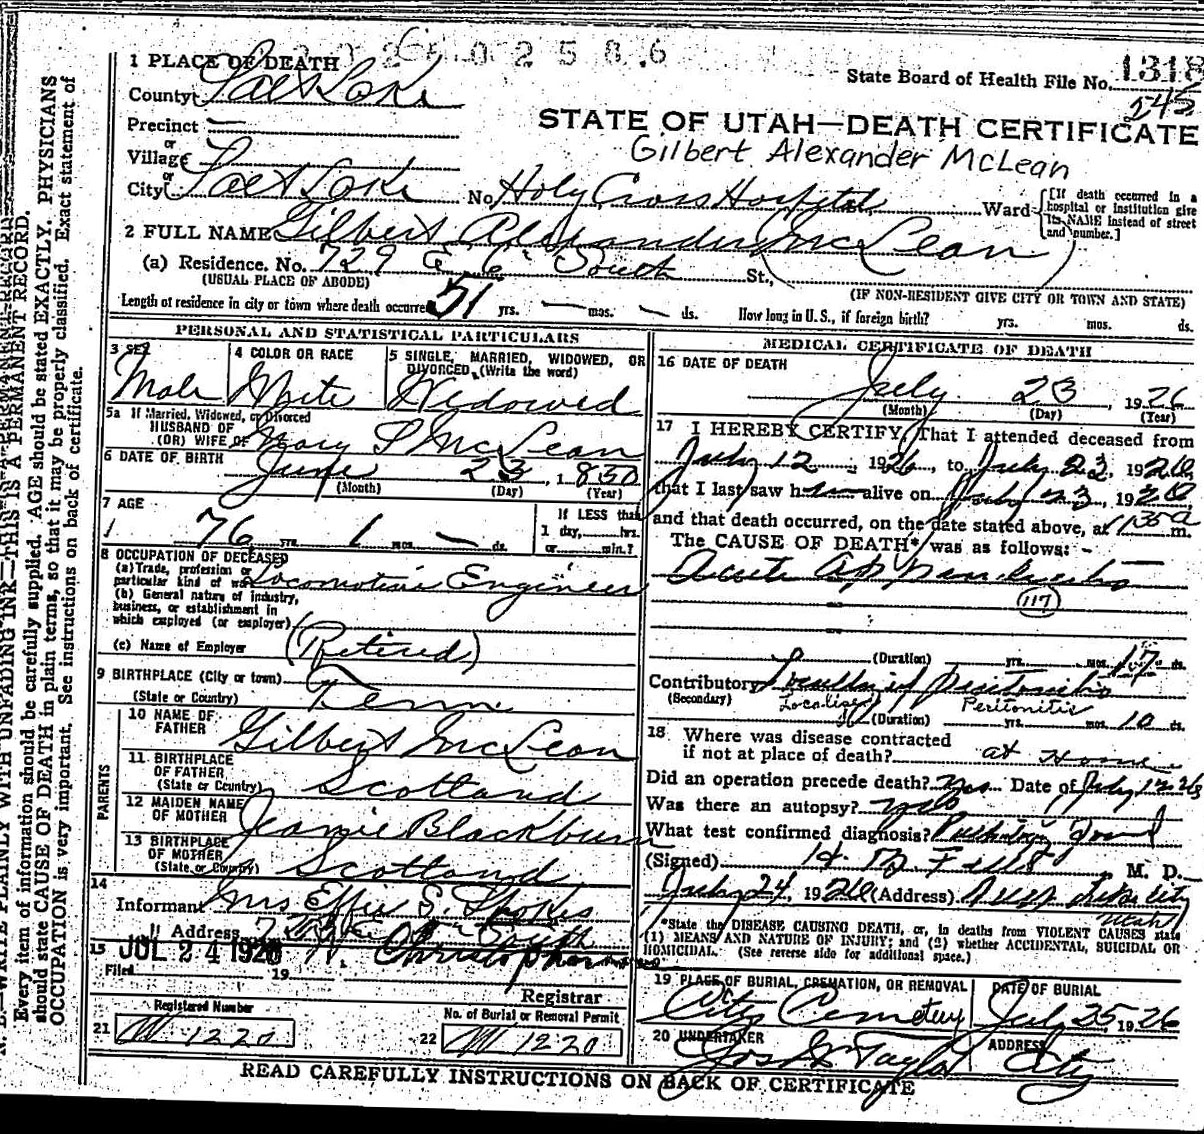 1 PLACE OF DEATH
State Board of Health File No. 1318
245
County Salt Lake
STATE OF UTAH—DEATH CERTIFICATE
Precinct —
Gilbert Alexander McLean
or
Village
or
City Salt Lake No. Holy Cross Hospital Ward
[If death occurred in a hospital or institution give its NAME instead of street and number.]
2 FULL NAME Gilbert Alexander McLean
(a) Residence. No. 729 E 6 South St.,
(USUAL PLACE OF ABODE)
(IF NON-RESIDENT GIVE CITY OR TOWN AND STATE)
Length of residence in city or town where death occurred 51 yrs. — mos. — ds. How long in U. S., if foreign birth? yrs. mos. ds.
PERSONAL AND STATISTICAL PARTICULARS
3 SEX Male
4 COLOR OR RACE White
5 SINGLE, MARRIED, WIDOWED, OR DIVORCED, (Write the word) Widowed
5a If Married, Widowed, or Divorced
HUSBAND OF
(OR) WIFE OF Mary S McLean
6 DATE OF BIRTH June 23, 1850
(Month) (Day) (Year)
7 AGE 76 yrs. 1 mos. — ds.
If LESS than
1 day, hrs.
or min.?
8 OCCUPATION OF DECEASED
(a) Trade, profession or
particular kind of work Locomotive Engineer
(b) General nature of industry,
business, or establishment in
which employed (or employer)
(c) Name of Employer (Retired)
9 BIRTHPLACE (City or town)
(State or Country) Tenn
PARENTS
10 NAME OF
FATHER Gilbert McLean
11 BIRTHPLACE
OF FATHER
(State or Country) Scotland
12 MAIDEN NAME
OF MOTHER Jeanie Blackburn
13 BIRTHPLACE
OF MOTHER
(State or Country) Scotland
14
Informant Mrs Effie S
" Address South
15 JUL 24 1926
Filed 19
Registrar
Registered Number
21 W 1220
No. of Burial or Removal Permit
22 W 1220
MEDICAL CERTIFICATE OF DEATH
16 DATE OF DEATH
July 23, 1926
(Month) (Day) (Year)
17 I HEREBY CERTIFY, That I attended deceased from
July 12, 1926, to July 23, 1926
that I last saw h alive on July 23, 1926
and that death occurred, on the date stated above, at 1 35 a m.
The CAUSE OF DEATH* was as follows:
Acute Appendicitis
117
(Duration) yrs. mos. ds.
Contributory Localized peritonitis
(Secondary) Localized Peritonitis
(Duration) yrs. mos. 10 ds
18 Where was disease contracted
if not at place of death? at Home
Did an operation precede death? yes Date of July 12-26
Was there an autopsy? no
What test confirmed diagnosis?
(Signed) M. D.
July 24, 1926 (Address) City
Utah
*State the DISEASE CAUSING DEATH, or, in deaths from VIOLENT CAUSES state
(1) MEANS AND NATURE OF INJURY; and (2) whether ACCIDENTAL, SUICIDAL OR
HOMICIDAL. (See reverse side for additional space.)
19 PLACE OF BURIAL, CREMATION, OR REMOVAL City Cemetery
DATE OF BURIAL July 25, 1926
20 UNDERTAKER Jos Wm Taylor
ADDRESS City
READ CAREFULLY INSTRUCTIONS ON BACK OF CERTIFICATE
WRITE PLAINLY WITH UNFADING INK—THIS IS A PERMANENT RECORD.
Every item of information should be carefully supplied. AGE should be stated EXACTLY. PHYSICIANS
should state CAUSE OF DEATH in plain terms, so that it may be properly classified. Exact statement of
OCCUPATION is very important. See instructions on back of certificate.